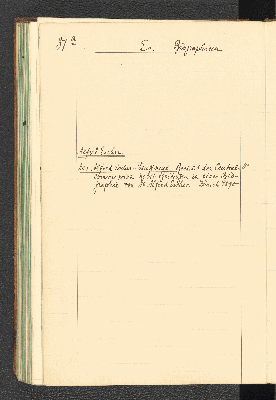 87 a
E. Biographieen
Alfred Escher.
Das Alfred Escher-Denkmal. Bericht der Central-
Commission nebst Beiträgen zu einer Bio-
graphie von Dr Alfred Escher. Zürich 1890